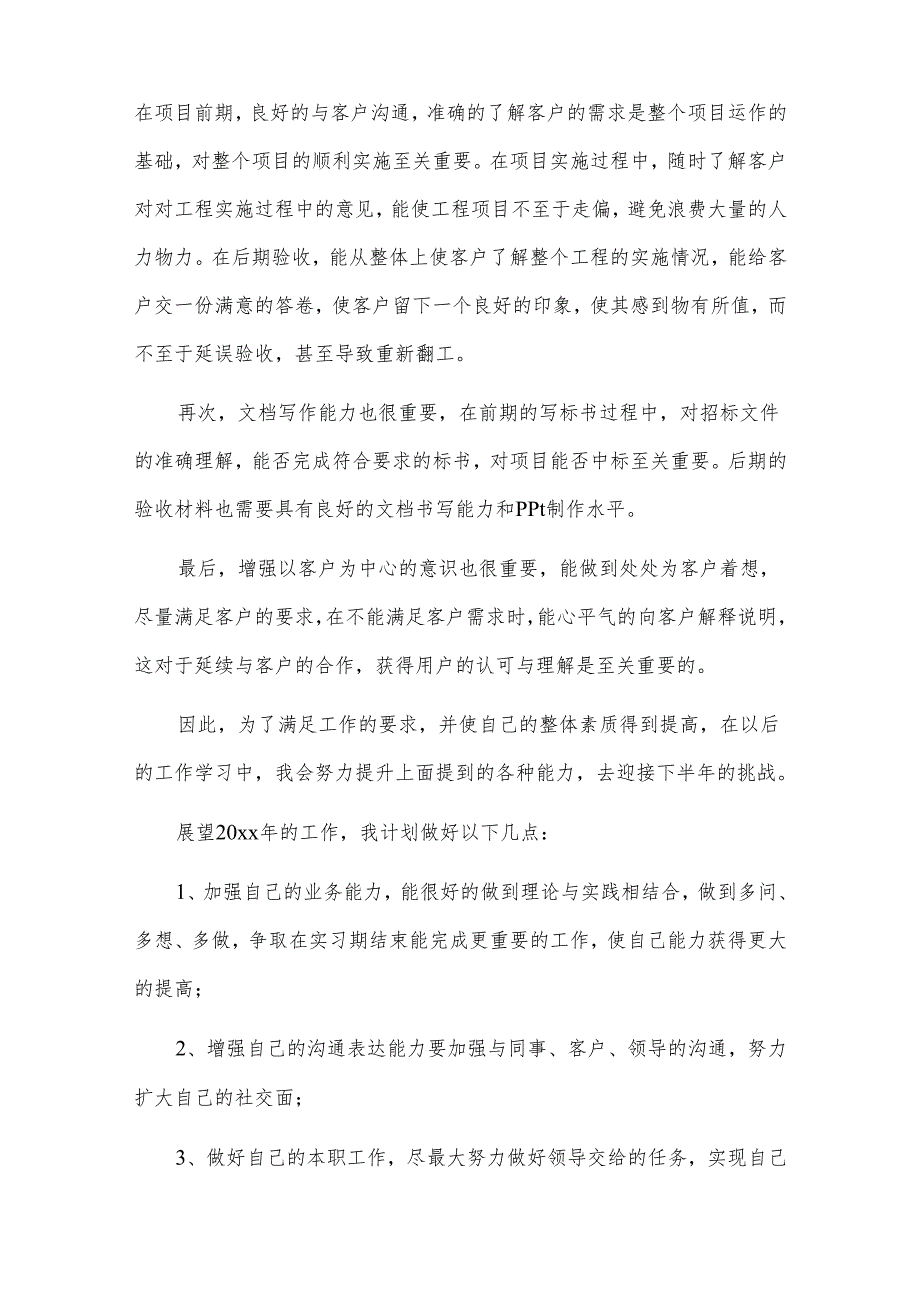 在项目前期，良好的与客户沟通，准确的了解客户的需求是整个项目运作的
基础，对整个项目的顺利实施至关重要。在项目实施过程中，随时了解客户
对对工程实施过程中的意见，能使工程项目不至于走偏，避免浪费大量的人
力物力。在后期验收，能从整体上使客户了解整个工程的实施情况，能给客
户交一份满意的答卷，使客户留下一个良好的印象，使其感到物有所值，而
不至于延误验收，甚至导致重新翻工。
再次，文档写作能力也很重要，在前期的写标书过程中，对招标文件
的准确理解，能否完成符合要求的标书，对项目能否中标至关重要。后期的
验收材料也需要具有良好的文档书写能力和PPt制作水平。
最后，增强以客户为中心的意识也很重要，能做到处处为客户着想，
尽量满足客户的要求，在不能满足客户需求时，能心平气的向客户解释说明，
这对于延续与客户的合作，获得用户的认可与理解是至关重要的。
因此，为了满足工作的要求，并使自己的整体素质得到提高，在以后
的工作学习中，我会努力提升上面提到的各种能力，去迎接下半年的挑战。
展望20xx年的工作，我计划做好以下几点：
1、加强自己的业务能力，能很好的做到理论与实践相结合，做到多问、
多想、多做，争取在实习期结束能完成更重要的工作，使自己能力获得更大
的提高；
2、增强自己的沟通表达能力要加强与同事、客户、领导的沟通，努力
扩大自己的社交面；
3、做好自己的本职工作，尽最大努力做好领导交给的任务，实现自己